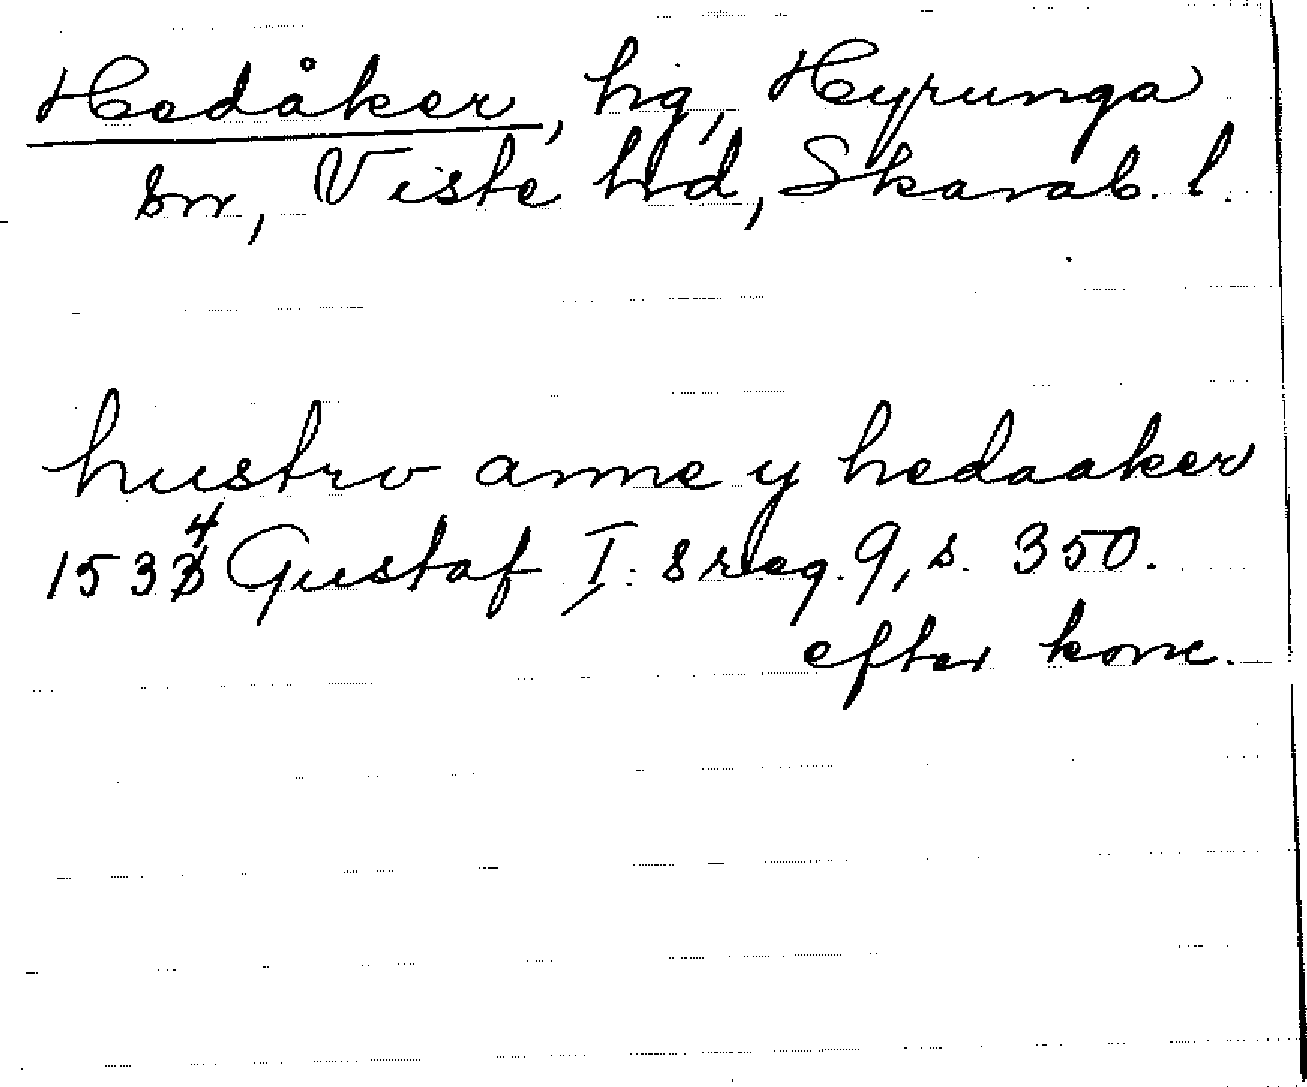 Hedåker, hg, Hyrunga
sn, Viste hrd, Skarab. l.
hustro anne y hedaaker
1534 Gustaf I:s reg. 9, s. 350.
efter konc.